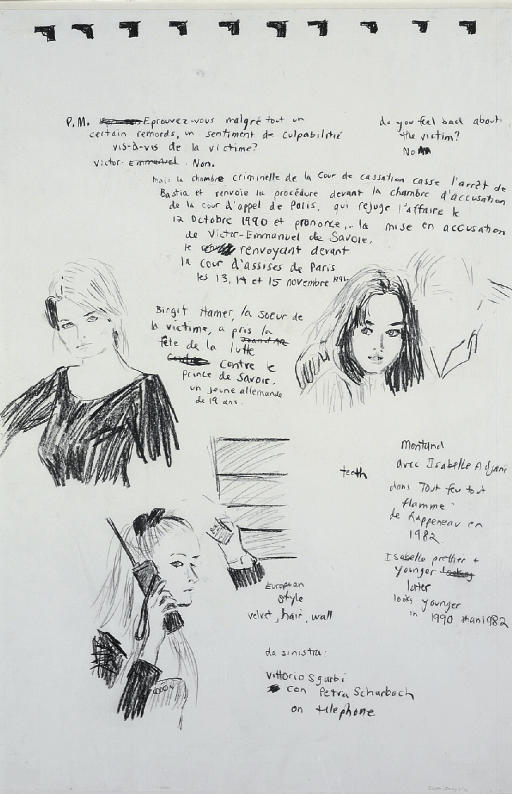 P.M. Eprouvez-vous malgré tout un
certain remords, un sentiment de culpabilitié
vis-à-vis de la victime?
Victor-Emmanuel. Non.
do you feel bad about
the victim?
No
Mais la chambre criminelle de la Cour de cassation casse l'arrêt de
Bastia et renvoie la procédure devant la chambre d'accusation
de la cour d'appel de Paris, qui rejuge l'affaire le
12 Octobre 1990 et prononce... la mise en accusation
de Victor-Emmanuel de Savoie,
le renvoyant devant
la cour d'assises de Paris
les 13, 14 et 15 novembre 1991
Birgit Hamer, la soeur de
la victime, a pris la
tête de la lutte
contre le
prince de Savoie.
un jeune allemande
de 19 ans.
teeth
Montand
avec Isabelle Adjani
dans Tout feu tout
flamme
de Rappeneau en
1982
Isabelle prettier +
younger
later
looks younger
in 1990 than 1982
European
style
velvet, hair, wall
da sinistra:
Vittorio Sgarbi
con Petra Scharbach
on telephone